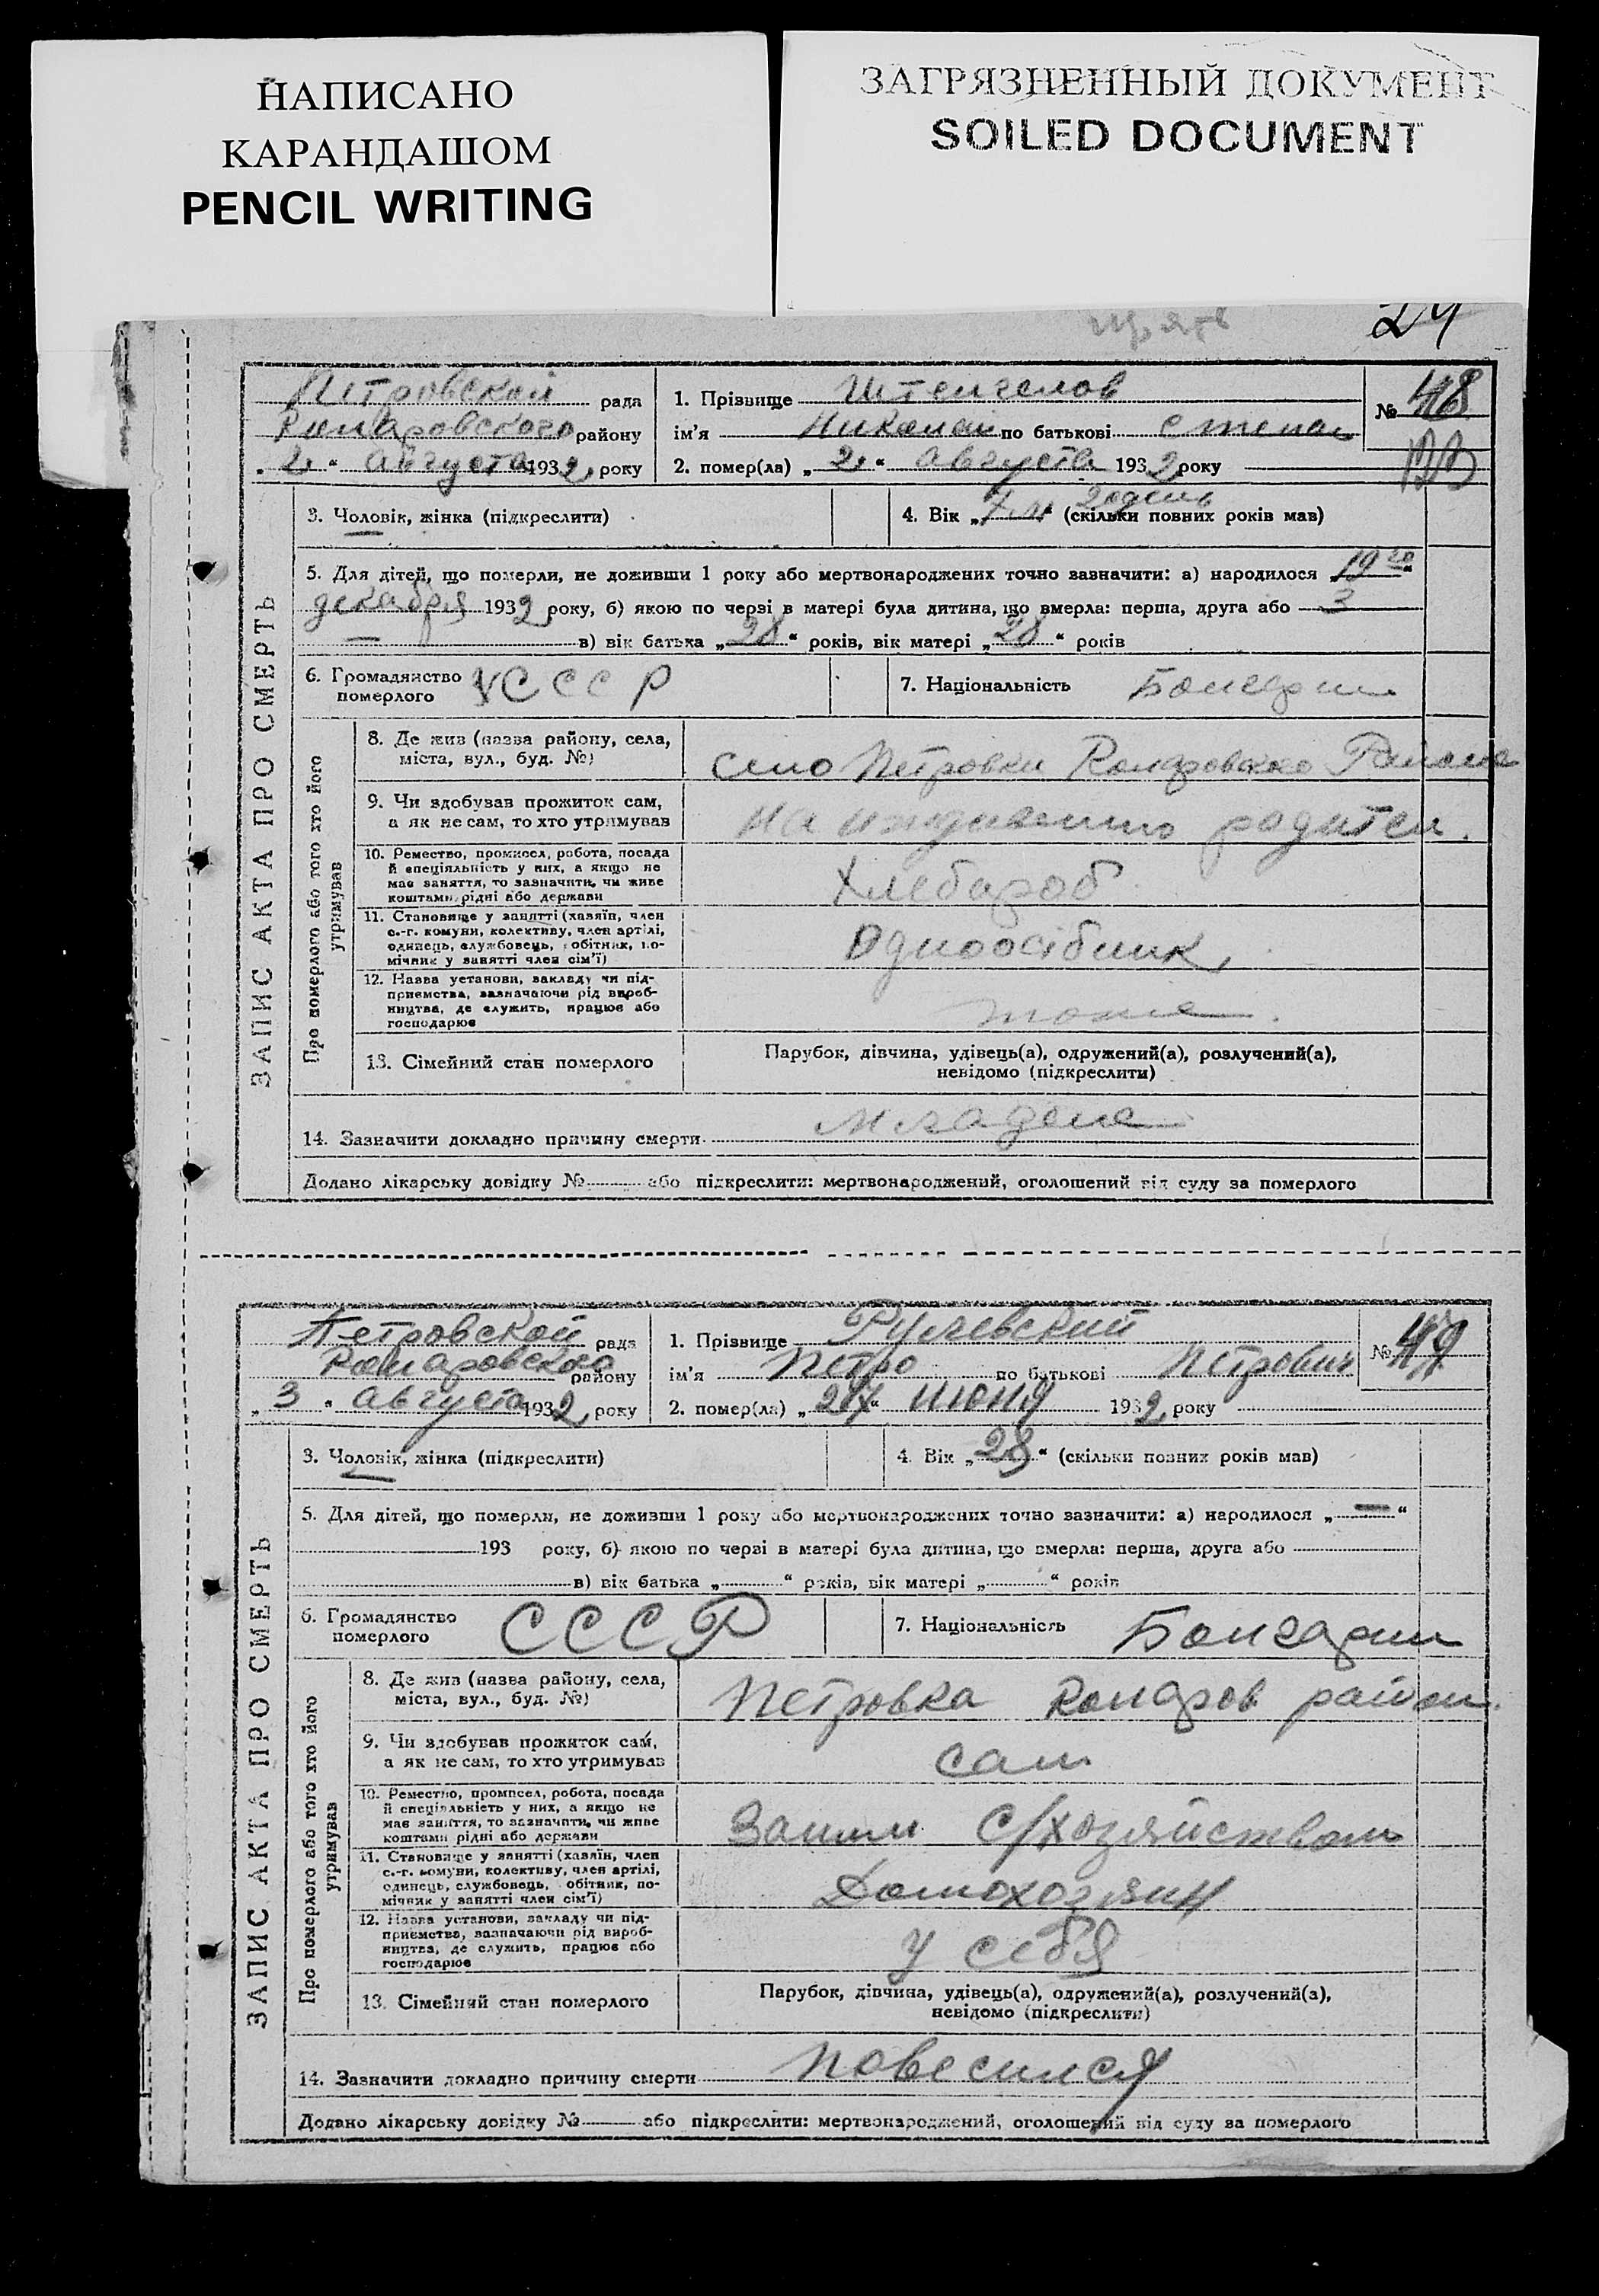 НАПИСАНО
КАРАНДАШОМ
PENCIL WRITING
ЗАГРЯЗНЕННЫЙ ДОКУМЕНТ
SOILED DOCUMENT
24
ЗАПИС АКТА ПРО СМЕРТЬ
Петровской рада
району
„2“ августа 1932 року
1. Прізвище
ім'я Николай по батькові степан
2. помер(ла) „2“ августа 1932 року
№ 48
3. Чоловік, жінка (підкреслити)
4. Вік „7 м“ (скільки повних років мав)
5. Для дітей, що померли, не доживши 1 року або мертвонароджених точно зазначити: а) народилося „19“
декабря 1932 року, б) якою по черзі в матері була дитина, що вмерла: перша, друга або 3
в) вік батька „28“ років, вік матері „28“ років
6. Громадянство
померлого
УСССР
7. Національність Болгарин
Про померлого або того хто його
утримував
8. Де жив (назва району, села,
міста, вул., буд. №)
село Петровки Района
9. Чи здобував прожиток сам,
а як не сам, то хто утримував
на родител.
10. Ремество, промисел, робота, посада
й спеціяльність у них, а якщо не
має заняття, то зазначити, чи живе
коштами рідні або держави
Хлебороб
11. Становище у занятті (хазяїн, член
с.-г. комуни, колективу, член артілі,
одинець, службовець, робітник, по-
мічник у занятті член сім'ї)
Одноосібник
12. Назва установи, закладу чи під-
приємства, зазначаючи рід вироб-
ництва, де служить, працює або
господарює
тоже
13. Сімейний стан померлого
Парубок, дівчина, удівець(а), одружений(а), розлучений(а),
невідомо (підкреслити)
14. Зазначити докладно причину смерти младене
Додано лікарську довідку № або підкреслити: мертвонароджений, оголошений від суду за померлого
ЗАПИС АКТА ПРО СМЕРТЬ
Петровской рада
району
„3“ августа 1932 року
1. Прізвище
ім'я Петро по батькові Петрович
2. помер(ла) „27“ июня 1932 року
№ 49
3. Чоловік, жінка (підкреслити)
4. Вік „28“ (скільки повних років мав)
5. Для дітей, що померли, не доживши 1 року або мертвонароджених точно зазначити: а) народилося „—“
193 року, б) якою по черзі в матері була дитина, що вмерла: перша, друга або
в) вік батька „ “ років, вік матері „ “ років
6. Громадянство
померлого
СССР
7. Національність Болгарин
Про померлого або того хто його
утримував
8. Де жив (назва району, села,
міста, вул., буд. №)
Петровка район.
9. Чи здобував прожиток сам,
а як не сам, то хто утримував
сам
10. Ремество, промисел, робота, посада
й спеціяльність у них, а якщо не
має заняття, то зазначити, чи живе
коштами рідні або держави
с/хозяйством
11. Становище у занятті (хазяїн, член
с.-г. комуни, колективу, член артілі,
одинець, службовець, робітник, по-
мічник у занятті член сім'ї)
Домохозяин
12. Назва установи, закладу чи під-
приємства, зазначаючи рід вироб-
ництва, де служить, працює або
господарює
у себя
13. Сімейний стан померлого
Парубок, дівчина, удівець(а), одружений(а), розлучений(а),
невідомо (підкреслити)
14. Зазначити докладно причину смерти повесился
Додано лікарську довідку № або підкреслити: мертвонароджений, оголошений від суду за померлого